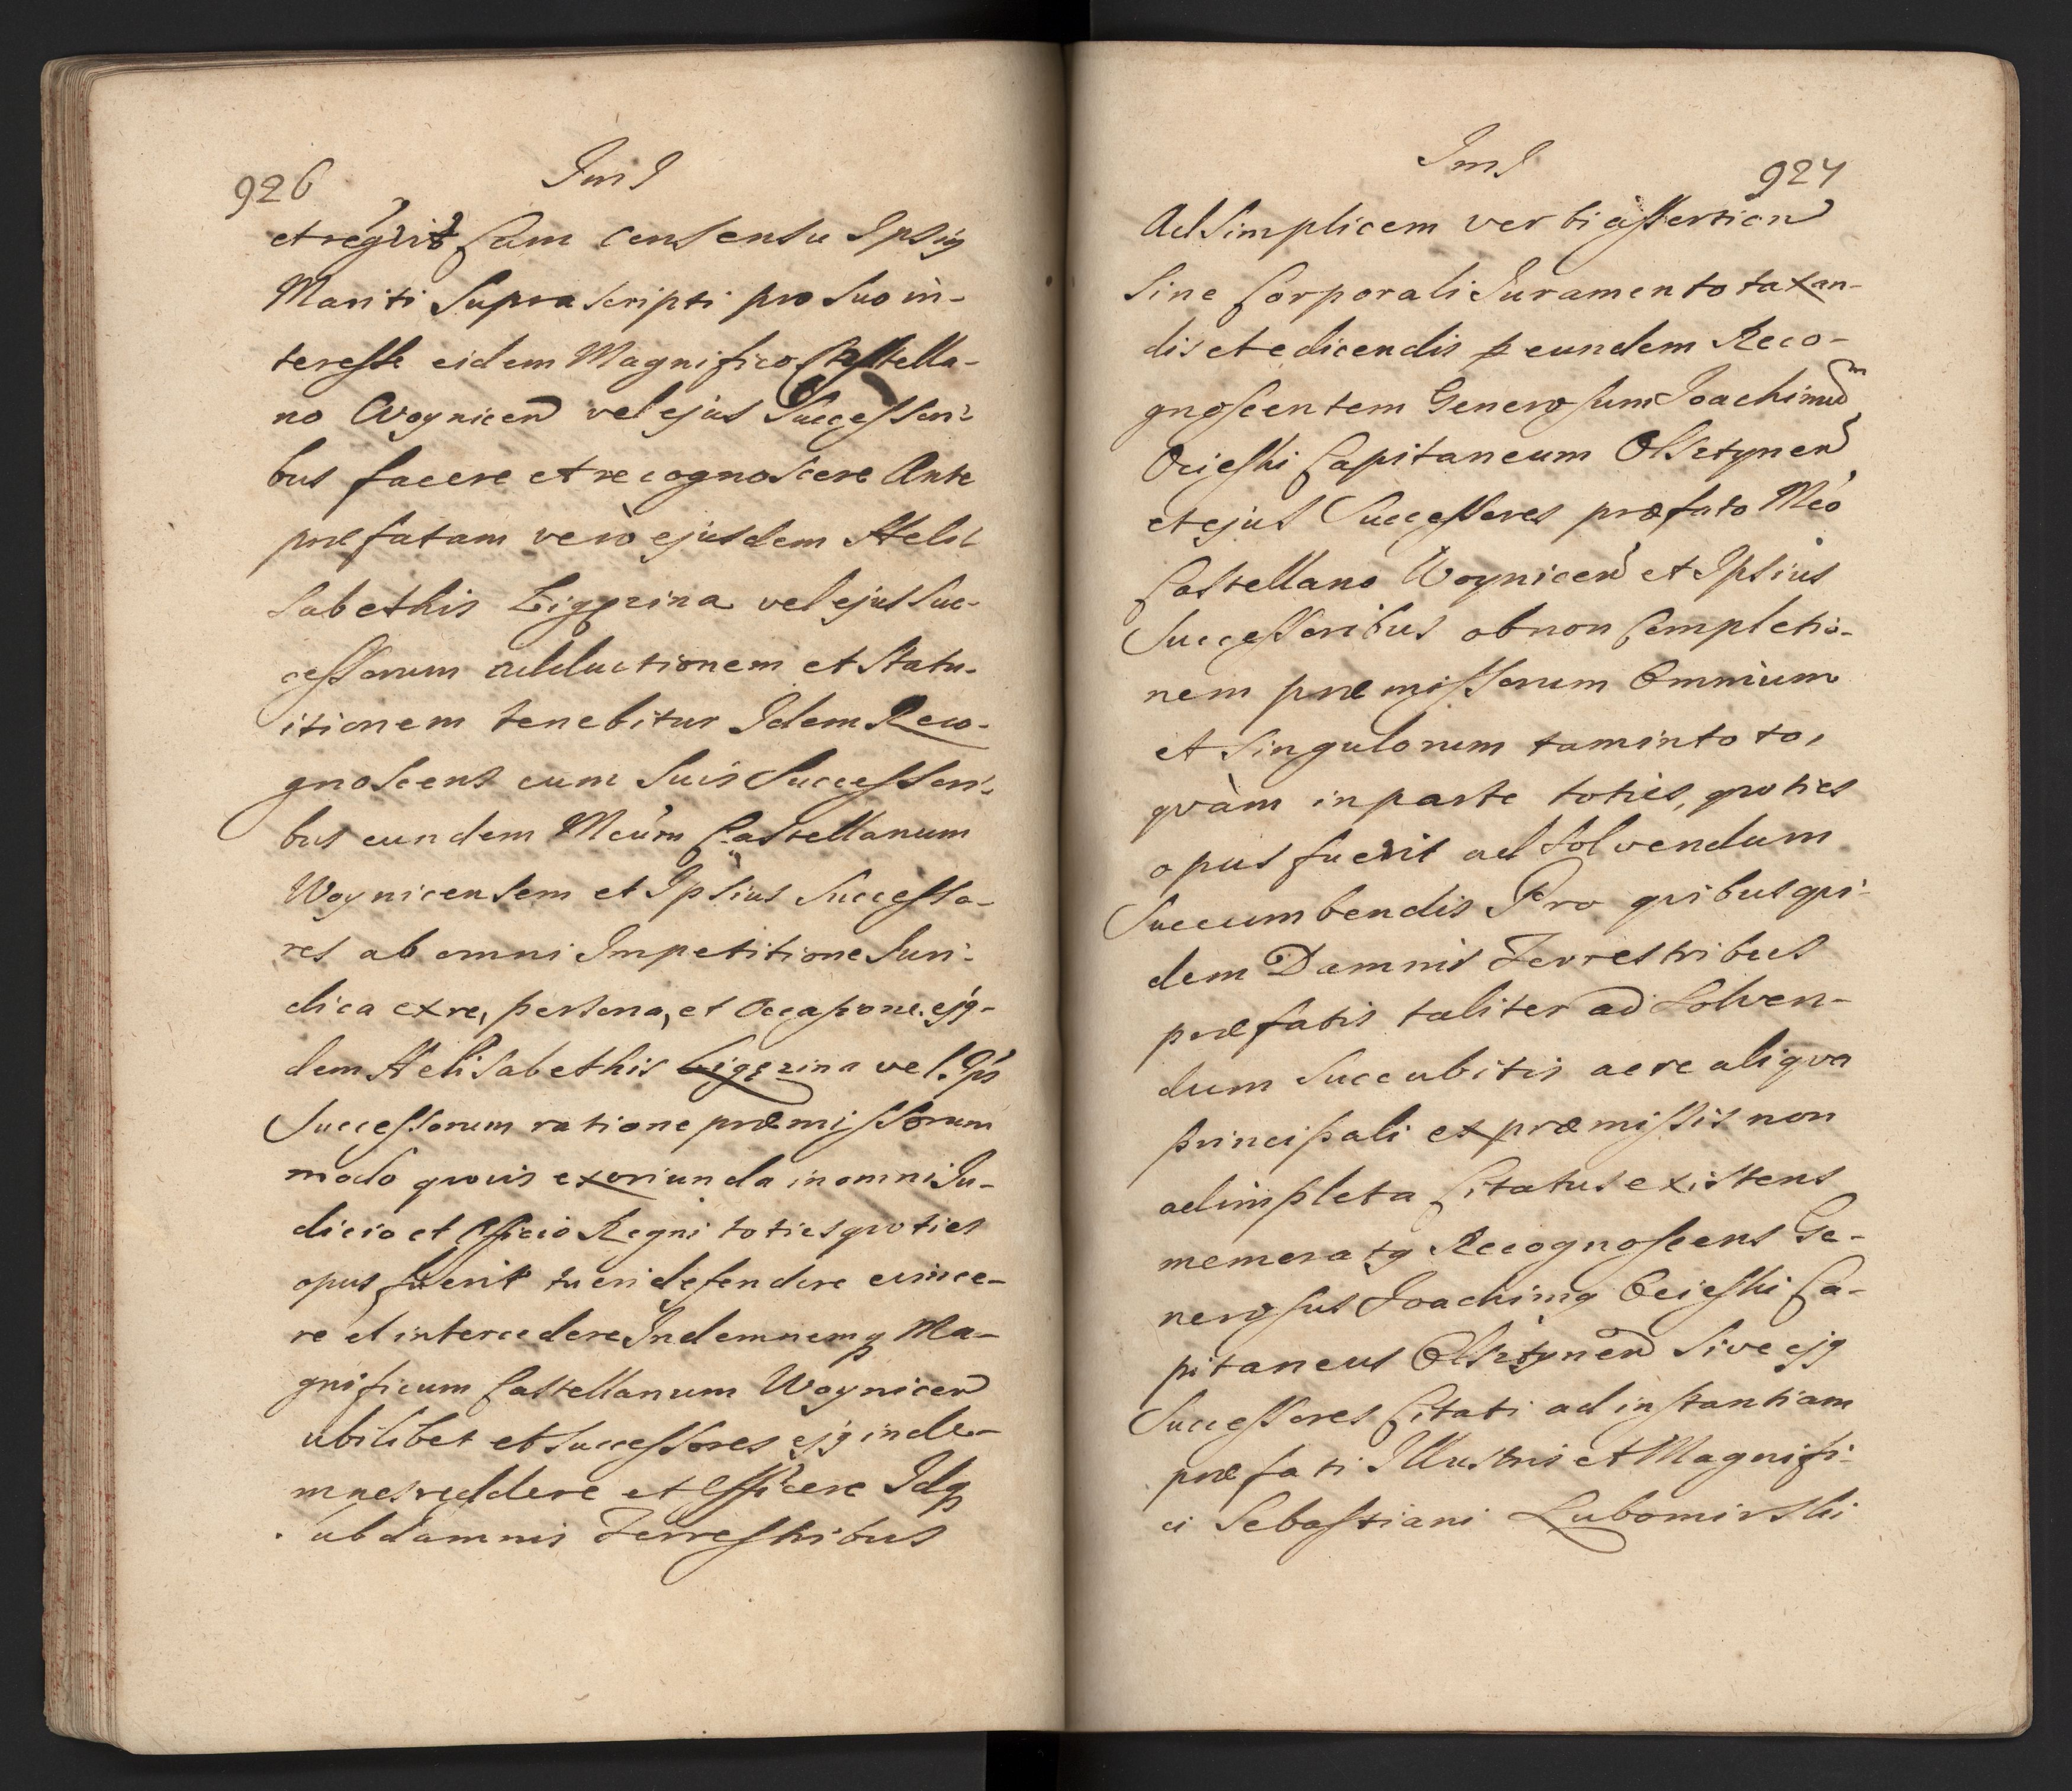 926
et reqvirit Cum Consensu Ipsig
Mariti Supra Scripti pro Suo in-
teresse eidem Magnifico Castella-
no Woynicen vel ejus Successori-
bus facere et recognoscere Ante
præfatam verò ejusdem Heli
Sabethis Ligęzina vel ejus Suc-
cessorum adductionem et Statu-
itionem tenebitur Idem Reco-
gnoscens cum Suis Successori-
bus eundem Mcum Castellanum
Woynicensem et Ipsius Successo-
res ab omni Impetitione Juri-
dica ex re, persona, et Occasione ejq-
dem Helisabethis Ligęzina vel Ips
Successorum ratione præmissorum
modo qvovis exoriunda in omni Ju-
dicio et Officio Regni toties qvoties
opus fuerit tueri defendere evince-
re et intercedere Indemnemq Ma-
gnificum Castellanum Woynicen
ubilibet et Successores ejq inde-
mnes reddere et efficere Idq
sub damnis Terrestribus
927
Ad Simplicem verbi assertion
Sine Corporali Juramento taxan-
dis et edicendis p eundem Reco-
gnoscentem Generosum Joachimum
Ocieski Capitaneum Olsztynen
et ejus Successores præfato Mco
Castellano Woynicen et Ipsius
Successoribus ob non Completio-
nem præmissorum Omnium
et Singulorum tam in toto,
qvàm in parte toties, qvoties
opus fuerit ad Solvendum
Succumbendis Pro qvibus qvi-
dem Damnis Terrestribus
præfatis taliter ad Solven-
dum Succubitis ac re aliqva
principali ex præmissis non
adimpleta Citatus existens
memoratq Recognoscens Ge-
nerosus Joachimq Ocieski Ca-
pitaneus Olsztynen Sive ejq
Successores Citati ad instantiam
præfati Illustris et Magnifi-
ci Sebastiani Lubomirski